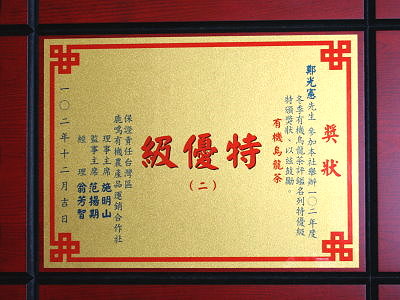 獎狀
鄭光憲先生 參加本社舉辦一〇二年度
冬季有機烏龍茶評鑑名列特優級
特頒獎狀、以茲鼓勵。
有機烏龍茶
特優級
(二)
保證責任台灣區
鹿鳴有機農產品運銷合作社
理事主席 施明山
監事主席 范揚期
經理 翁芳智
一〇二年十二月吉日